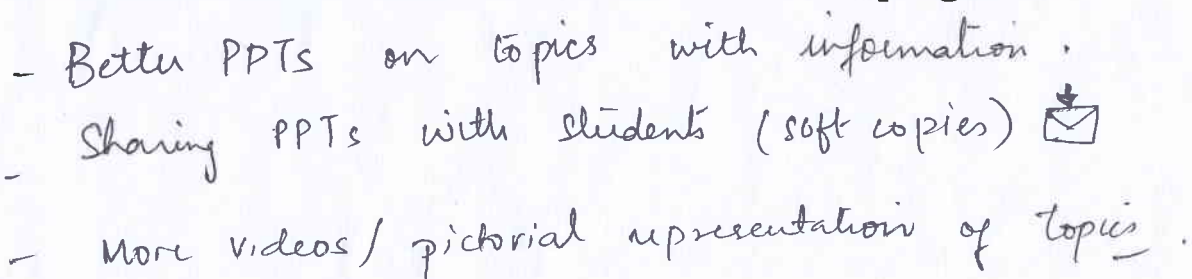 - Better PPTs on topics with information.
- Sharing PPTs with students (soft copies)
- More videos/ pictorial representation of topics.